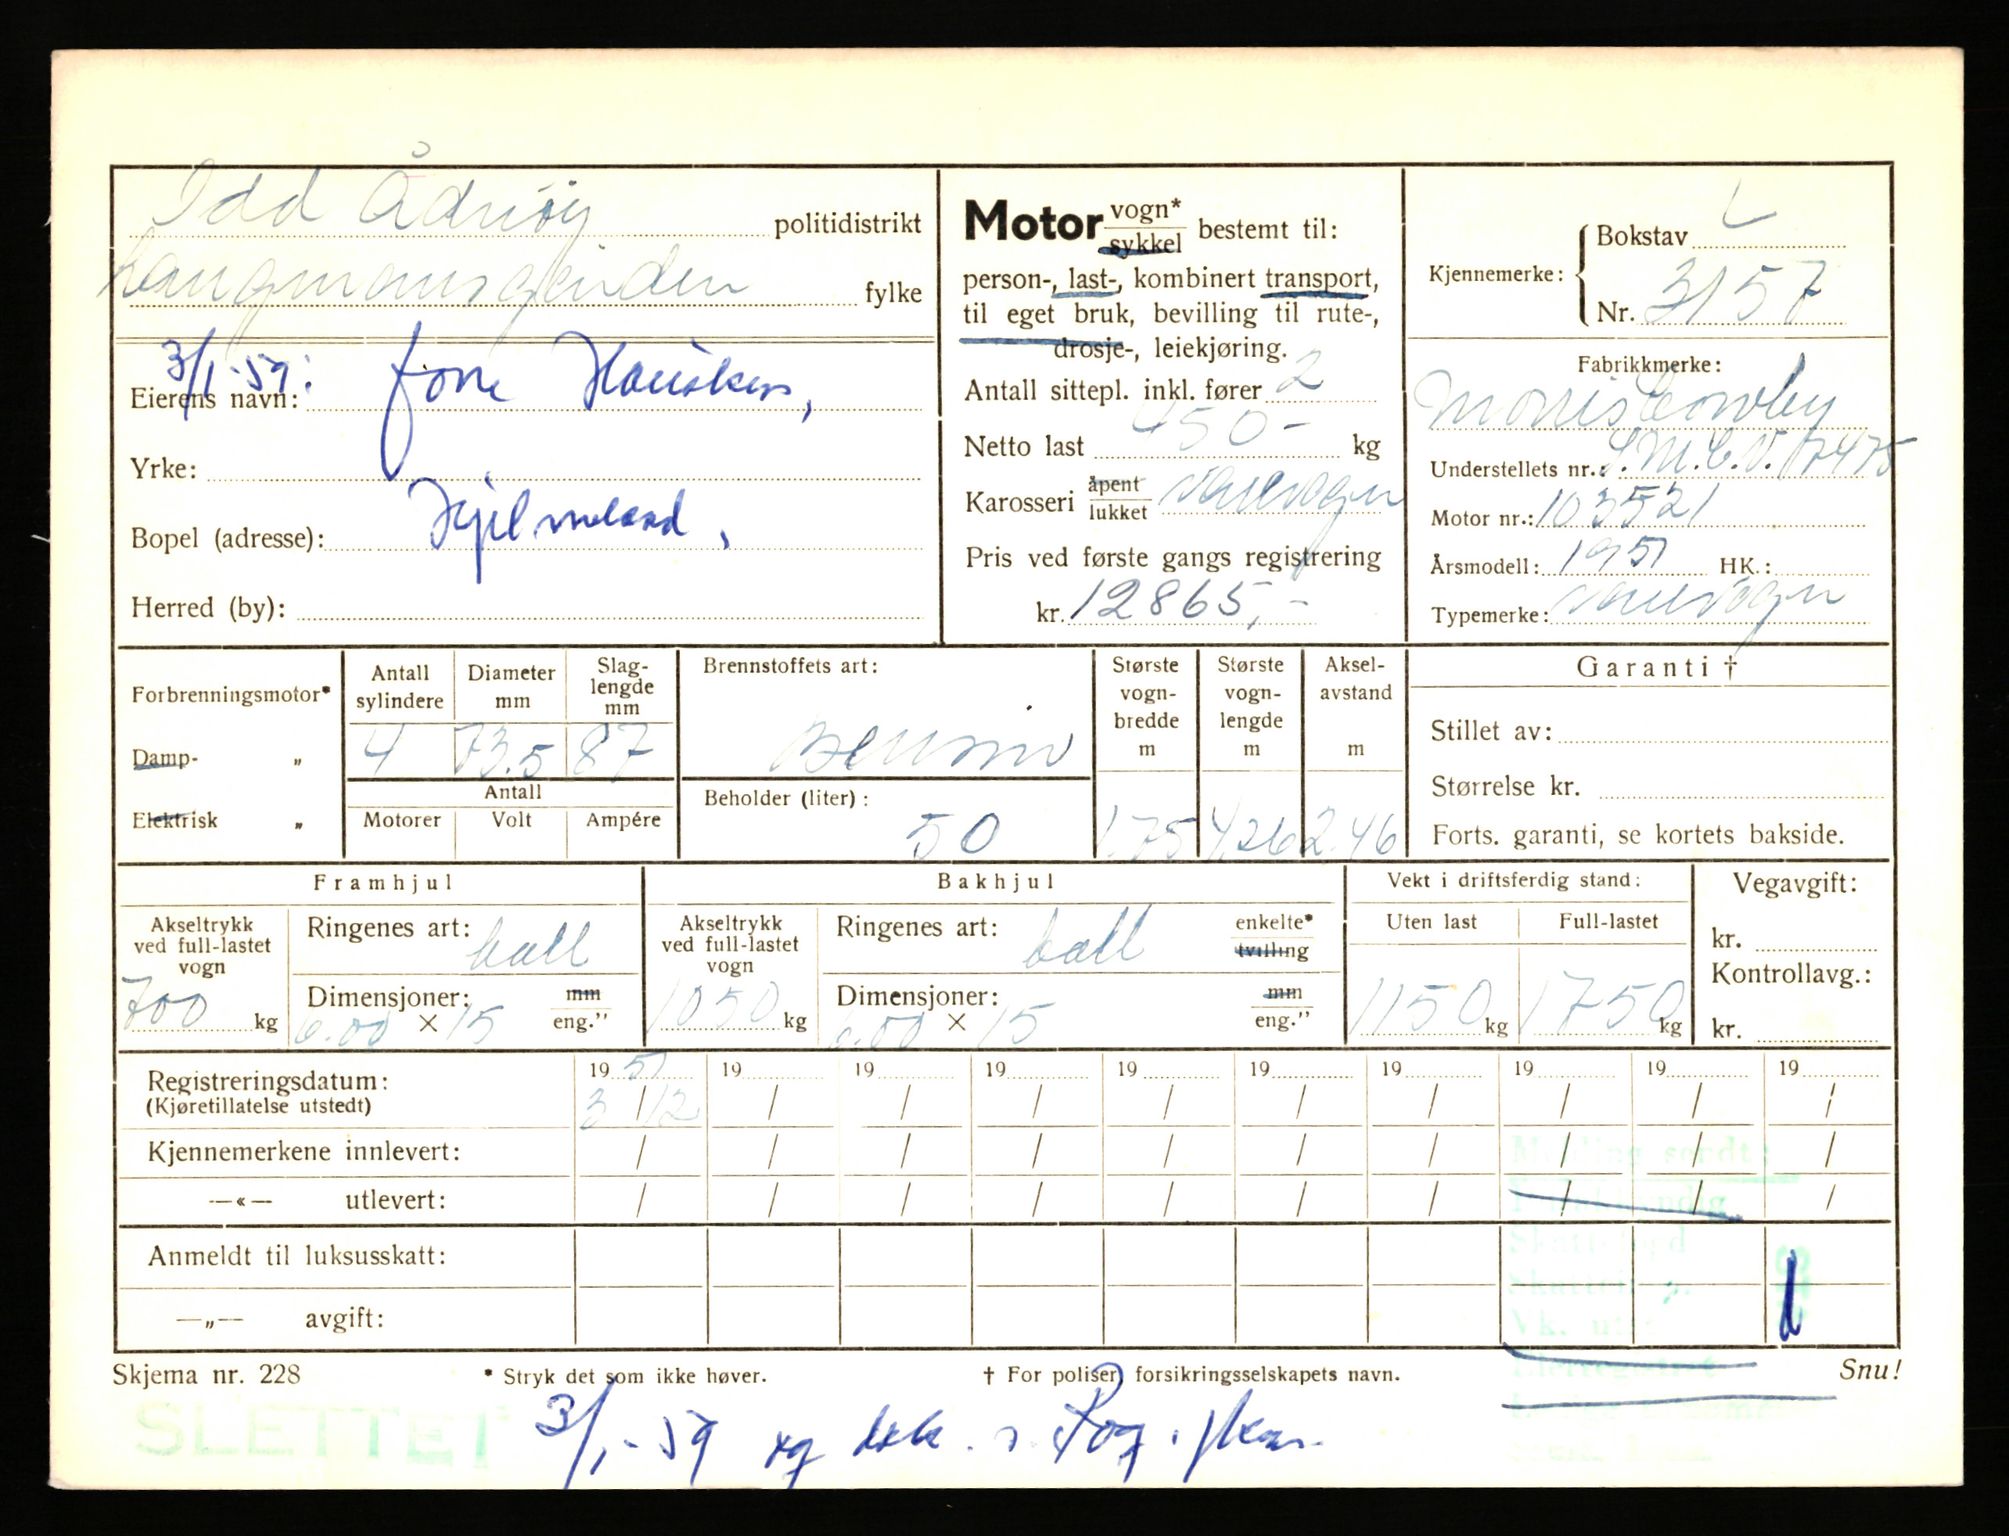 Idd
politidistrikt
fylke
3/1-59:
Eierens navn:
Yrke:
Bopel (adresse): Hjelmeland,
Herred (by):
Motor vogn* sykkel bestemt til:
person-, last-, kombinert transport,
til eget bruk, bevilling til rute-,
drosje-, leiekjøring.
Antall sittepl. inkl. fører 2
Netto last 450- kg
Karosseri åpent lukket varevogn
Pris ved første gangs registrering
kr. 12865,-
Kjennemerke: Bokstav L
Nr. 3157
Fabrikkmerke:
Morris Cowley
Understellets nr.: S.M.C.V. 17475
Motor nr.: 103521
Årsmodell: 1951 HK.:
Typemerke: varevogn
Forbrenningsmotor*
Damp- „
Elektrisk „
Antall sylindere 4
Diameter mm 73.5
Slaglengde mm 87
Antall
Motorer Volt Ampére
Brennstoffets art:
Bensin
Beholder (liter):
50
Største vognbredde m 1.75
Største vognlengde m 4,26
Akselavstand m 2.46
Garanti †
Stillet av:
Størrelse kr.
Forts. garanti, se kortets bakside.
Framhjul
Akseltrykk ved full-lastet vogn 700 kg
Ringenes art: ball
Dimensjoner: mm
6.00 × 15 eng.”
Bakhjul
Akseltrykk ved full-lastet vogn 1050 kg
Ringenes art: ball enkelte* tvilling
Dimensjoner: mm
6.00 × 15 eng.”
Vekt i driftsferdig stand:
Uten last 1150 kg
Full-lastet 1750 kg
Vegavgift:
kr.
Kontrollavg.:
kr.
Registreringsdatum: 1951 19 19 19 19 19 19 19 19 19
(Kjøretillatelse utstedt) 3/12 / / / / / / / / /
Kjennemerkene innlevert: / / / / / / / / / /
—«— utlevert: / / / / / / / / / /
Anmeldt til luksusskatt:
—„— avgift:
Melding sendt:
Skjema nr. 228 * Stryk det som ikke høver. † For poliser, forsikringsselskapets navn. Snu!
SLETTET
3/1-59